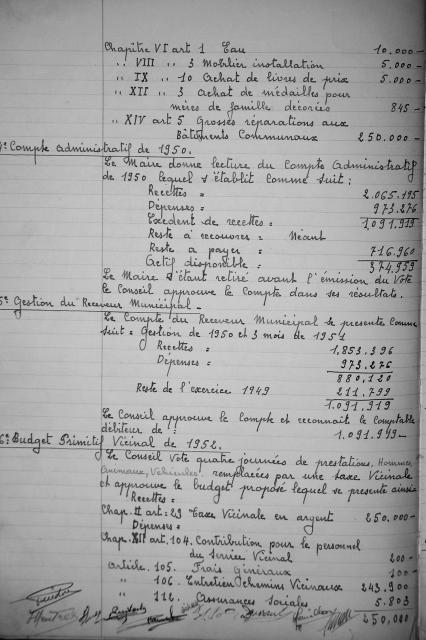 Chapitre VI art 1 Eau 10.000 -
" VIII " 3 Mobilier installation 5.000 -
" IX " 10 Achat de livres de prix 5.000 -
" XII " 3 Achat de médailles pour
mères de famille décorées 845 -
" XIV art 5 Grosses réparations aux
Bâtiments Communaux 250.000 -
4° Compte administratif de 1950.
Le Maire donne lecture du Compte Administratif
de 1950 lequel s'établit comme suit :
Recettes = 2.065.195
Dépenses = 973.276
Excédent de recettes = 1.091.919
Reste à recouvrer = Néant
Reste à payer = 716.960
Actif disponible = 374.959
Le Maire s'étant retiré avant l'émission du Vote
le Conseil approuve le Compte dans ses résultats.
5° Gestion du Receveur Municipal -
Le Compte du Receveur Municipal se présente comme
suit = Gestion de 1950 et 3 mois de 1951
Recettes = 1,853.396
Dépenses = 973.276
880,120
Reste de l'exercice 1949 211.799
1.091.919
Le Conseil approuve le Compte et reconnait le Comptable
débiteur de : 1.091.919 -
6° Budget Primitif Vicinal de 1952.
Le Conseil Vote quatre journées de prestations, Hommes,
Animaux, Véhicules remplacées par une taxe Vicinale
et approuve le budget proposé lequel se présente ainsi =
Recettes =
Chap. II art : 29 Taxe Vicinale en argent 250.000 -
Dépenses =
Chap. XII art. 104. Contribution pour le personnel
du Service Vicinal 200 -
Article. 105. Frais Généraux 100 -
" 106. Entretien Chemins Vicinaux 243.900
" 112. Assurances Sociales 5.803
250,000